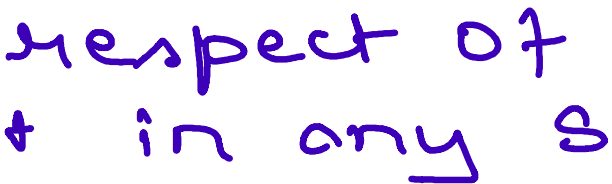 respect of
t in any s